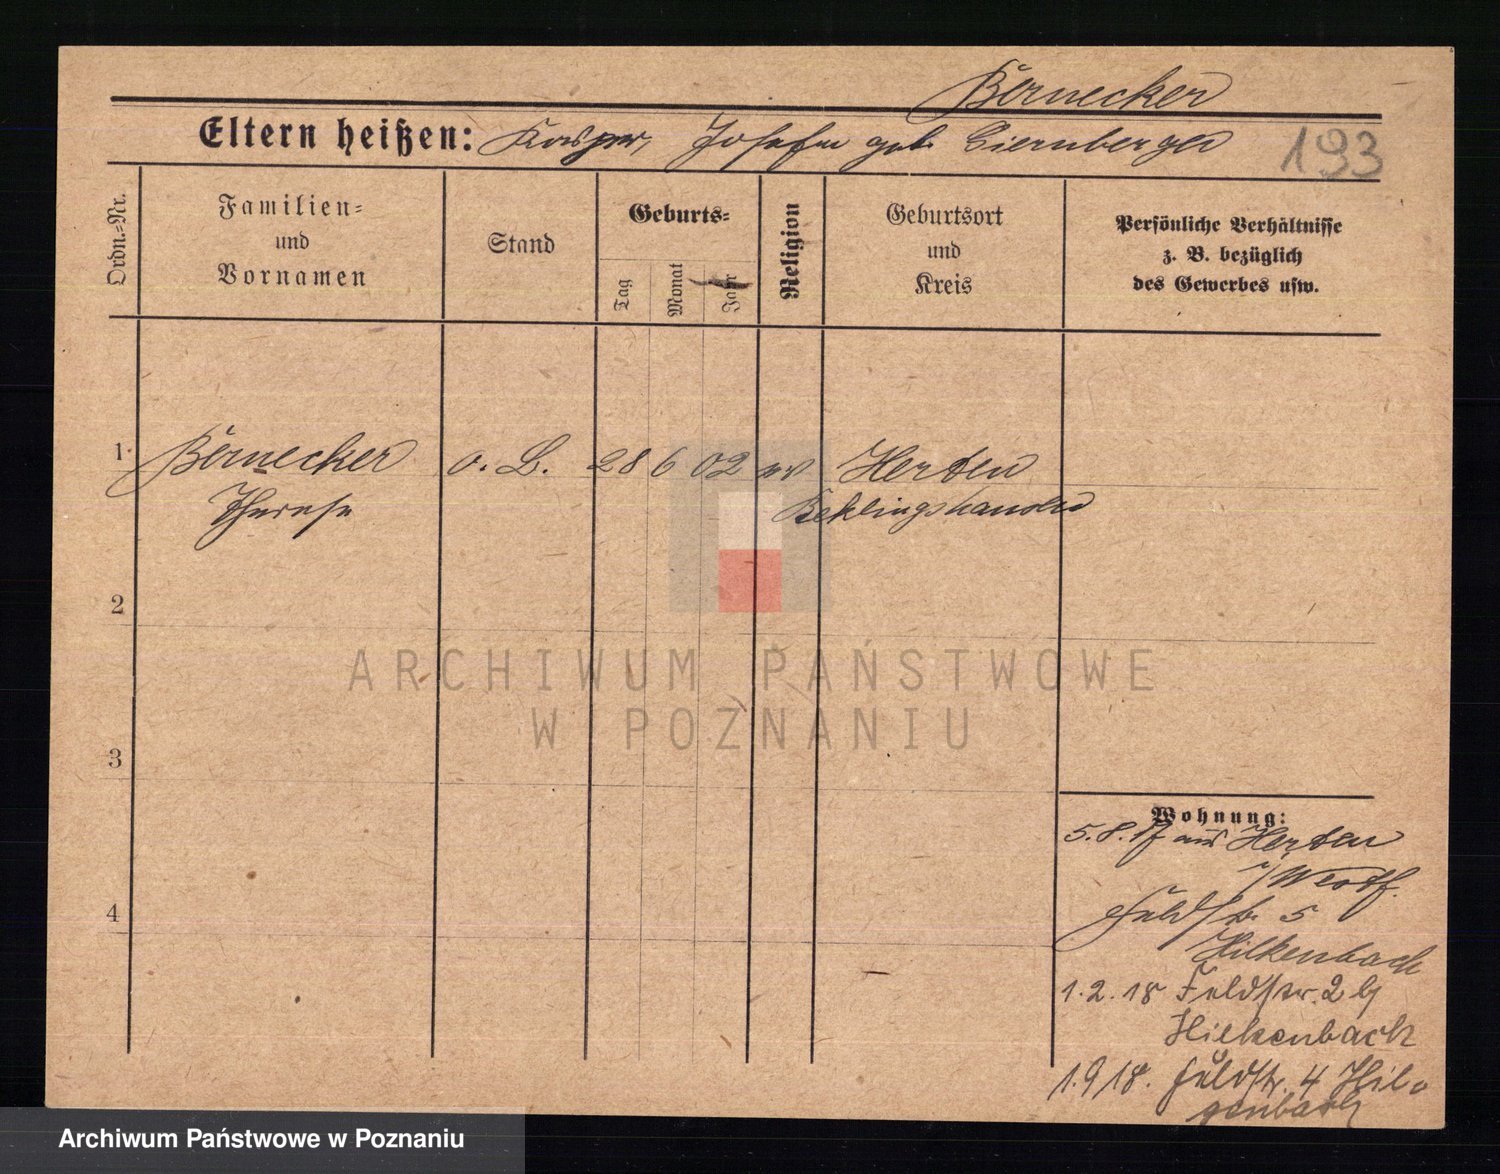 Bernecker
Eltern heißen: Kasper, Josefa geb. Ciernberger
193
Ordn.-Nr.
Familien-
und
Vornamen
Stand
Geburts-
Tag
Monat
Jahr
Religion
Geburtsort
und
Kreis
Persönliche Verhältnisse
z. B. bezüglich
des Gewerbes usw.
1. Bernecker o. B. 28 6 02 Herten
Therese
2
3
4
ARCHIWUM PAŃSTWOWE
W POZNANIU
Wohnung:
5.8.17 aus Herten
i/Westf.
Feldstr. 5
Hilkenbach
1.2.18 Feldstr. 2 b/
Hilkenbach
1.9.18. Feldstr. 4 Hil-
genbach
Archiwum Państwowe w Poznaniu